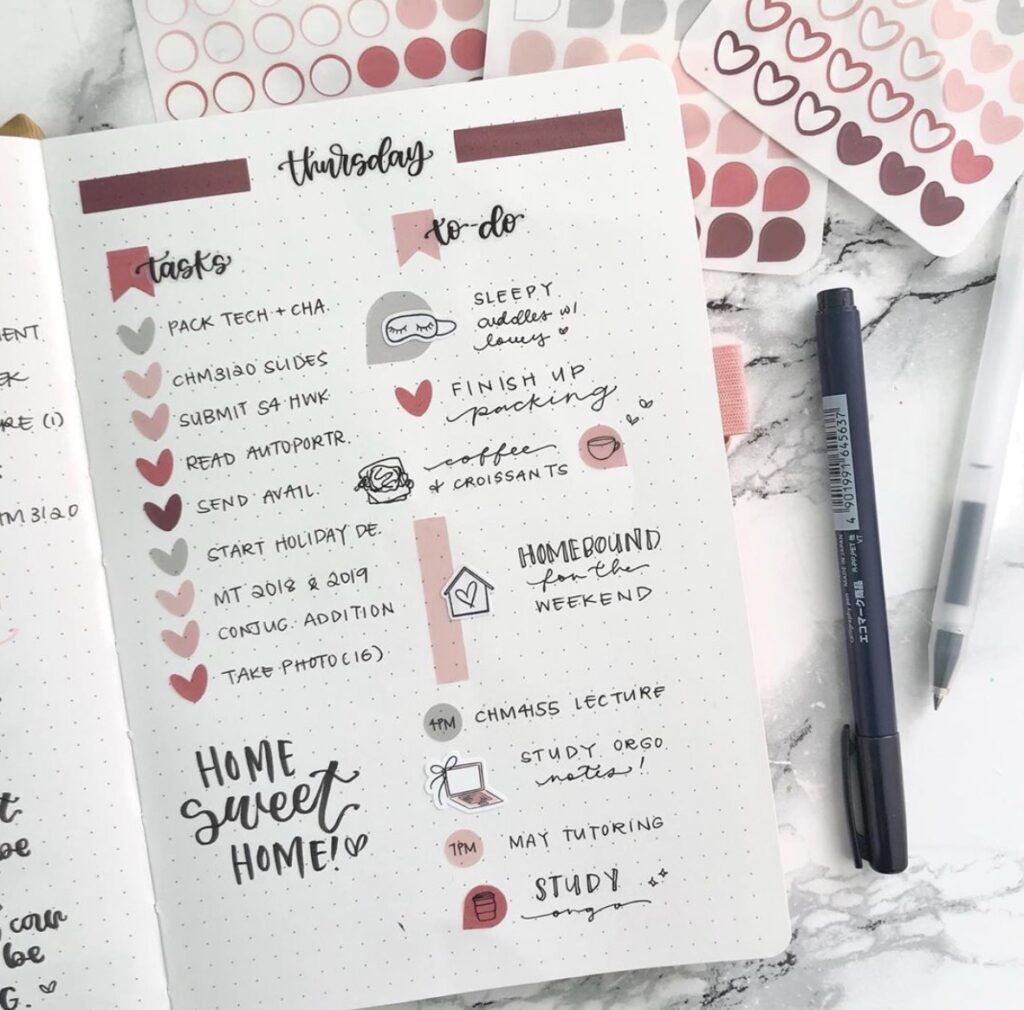 thursday
tasks
PACK TECH + CHA.
CHM3120 SLIDES
SUBMIT S4 HWK
READ AUTOPORTR.
SEND AVAIL.
START HOLIDAY DE.
MT 2018 & 2019
CONJUG. ADDITION
TAKE PHOTO (16)
HOME
sweet
HOME!
to-do
SLEEPY
cuddles w/
lowy
FINISH UP
packing
coffee
& CROISSANTS
HOMEBOUND
for the
WEEKEND
4PM CHM4155 LECTURE
STUDY ORGO
notes!
7PM MAY TUTORING
STUDY
orgo
ENT.
EK
RE (1)
TM3120
be
cour
be
G.
4 901991 645637
エコマーク商品
MADE IN JAPAN